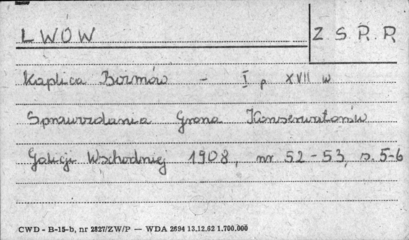 LWOW
Z S R R
Kaplica Boimów - I p XVII w
Sprawozdania Grona Konserwatorów
Galicji Wschodniej 1908, nr 52-53, s. 5-6
CWD - B-15-b, nr 2827/ZW/P — WDA 2694 13.12.62 1.700.000